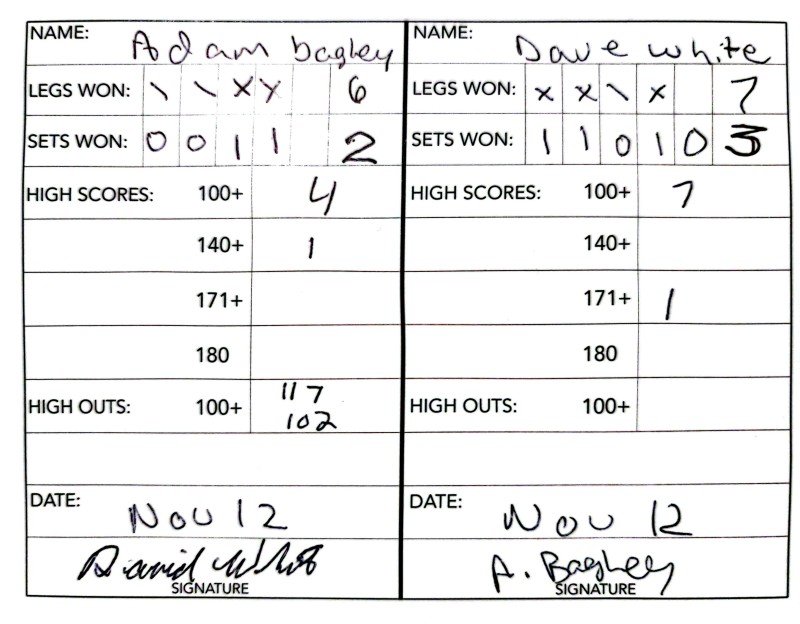 NAME: Adam bagley
LEGS WON: \ \ X X 6
SETS WON: 0 0 1 1 2
HIGH SCORES: 100+ 4
140+ 1
171+
180
HIGH OUTS: 100+ 117
102
DATE: Nov 12
David White
SIGNATURE
NAME: Dave white
LEGS WON: X X \ X 7
SETS WON: 1 1 0 1 0 3
HIGH SCORES: 100+ 7
140+
171+ 1
180
HIGH OUTS: 100+
DATE: Nov 12
A. Bagley
SIGNATURE